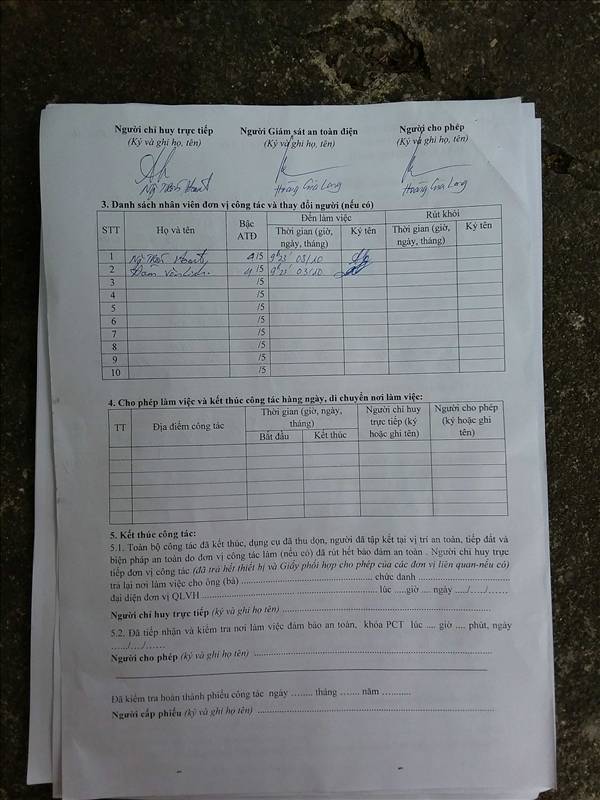 Người chỉ huy trực tiếp Người Giám sát an toàn điện Người cho phép
(Ký và ghi họ, tên) (Ký và ghi họ, tên) (Ký và ghi họ, tên)
Hoàng Gia Long Hoàng Gia Long
3. Danh sách nhân viên đơn vị công tác và thay đổi người (nếu có)
STT Họ và tên Bậc ATĐ Đến làm việc Rút khỏi
Thời gian (giờ, ngày, tháng) Ký tên Thời gian (giờ, ngày, tháng) Ký tên
1 4/5 03/10
2 Đàm Văn 4/5 03/10
3 /5
4 /5
5 /5
6 /5
7 /5
8 /5
9 /5
10 /5
4. Cho phép làm việc và kết thúc công tác hàng ngày, di chuyển nơi làm việc:
TT Địa điểm công tác Thời gian (giờ, ngày, tháng) Người chỉ huy trực tiếp (ký hoặc ghi tên) Người cho phép (ký hoặc ghi tên)
Bắt đầu Kết thúc
5. Kết thúc công tác:
5.1. Toàn bộ công tác đã kết thúc, dụng cụ đã thu dọn, người đã tập kết tại vị trí an toàn, tiếp đất và
biện pháp an toàn do đơn vị công tác làm (nếu có) đã rút hết bảo đảm an toàn . Người chỉ huy trực
tiếp đơn vị công tác (đã trả hết thiết bị và Giấy phối hợp cho phép của các đơn vị liên quan-nếu có)
trả lại nơi làm việc cho ông (bà) ........................................ chức danh ..............................
đại diện đơn vị QLVH ........................................ lúc .....giờ .... ngày ...../...../......
Người chỉ huy trực tiếp (ký và ghi họ tên) ........................................
5.2. Đã tiếp nhận và kiểm tra nơi làm việc đảm bảo an toàn, khóa PCT lúc .... giờ .... phút, ngày
....../..../......
Người cho phép (ký và ghi họ tên) ........................................
Đã kiểm tra hoàn thành phiếu công tác ngày ........ tháng ....... năm ..........
Người cấp phiếu (ký và ghi họ tên) ........................................